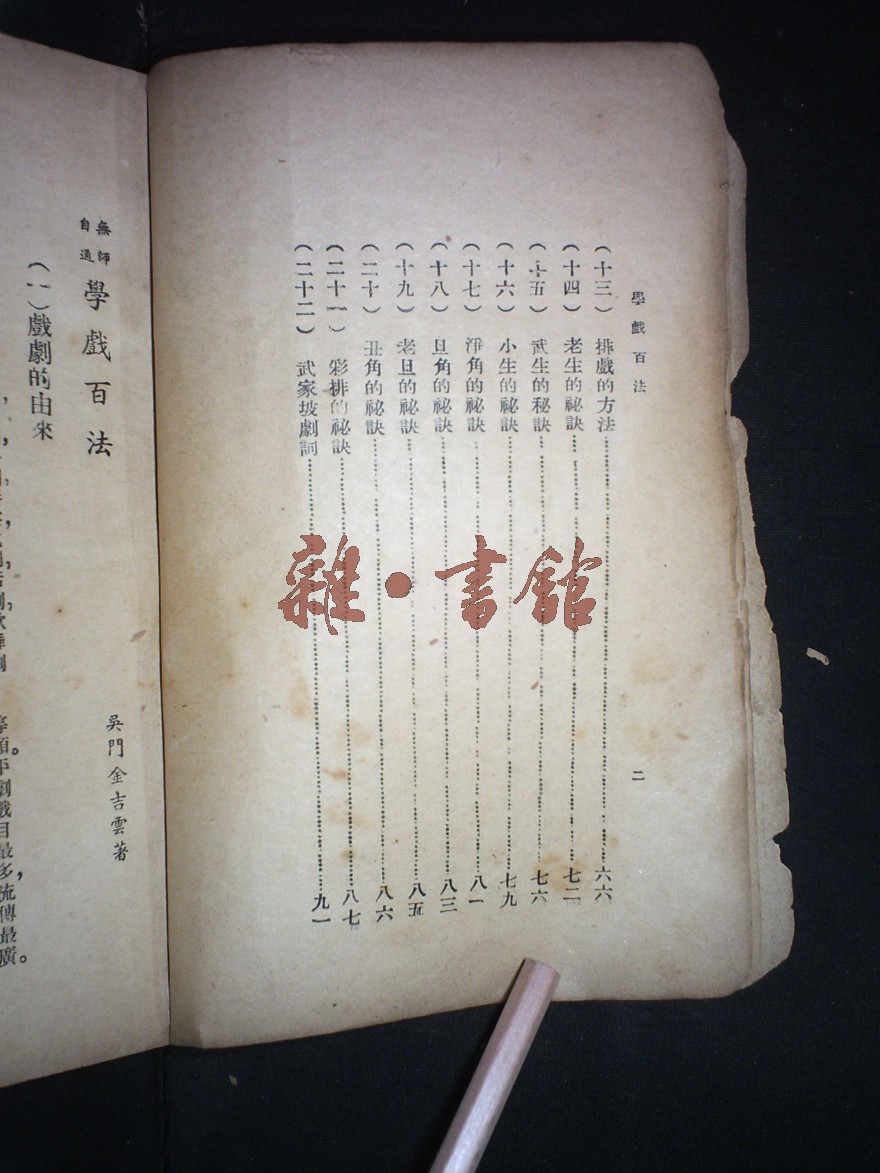 學戲百法
二
(十三) 排戲的方法 六六
(十四) 老生的祕訣 七二
(十五) 武生的秘訣 七六
(十六) 小生的祕訣 七九
(十七) 淨角的祕訣 八一
(十八) 旦角的祕訣 八三
(十九) 老旦的祕訣 八五
(二十) 丑角的祕訣 八六
(二十一) 彩排的祕訣 八七
(二十二) 武家坡劇詞 九一
雜·書館
無師自通 學戲百法
吳門金吉雲著
(一)戲劇的由來
平劇戲目最多,流傳最廣。